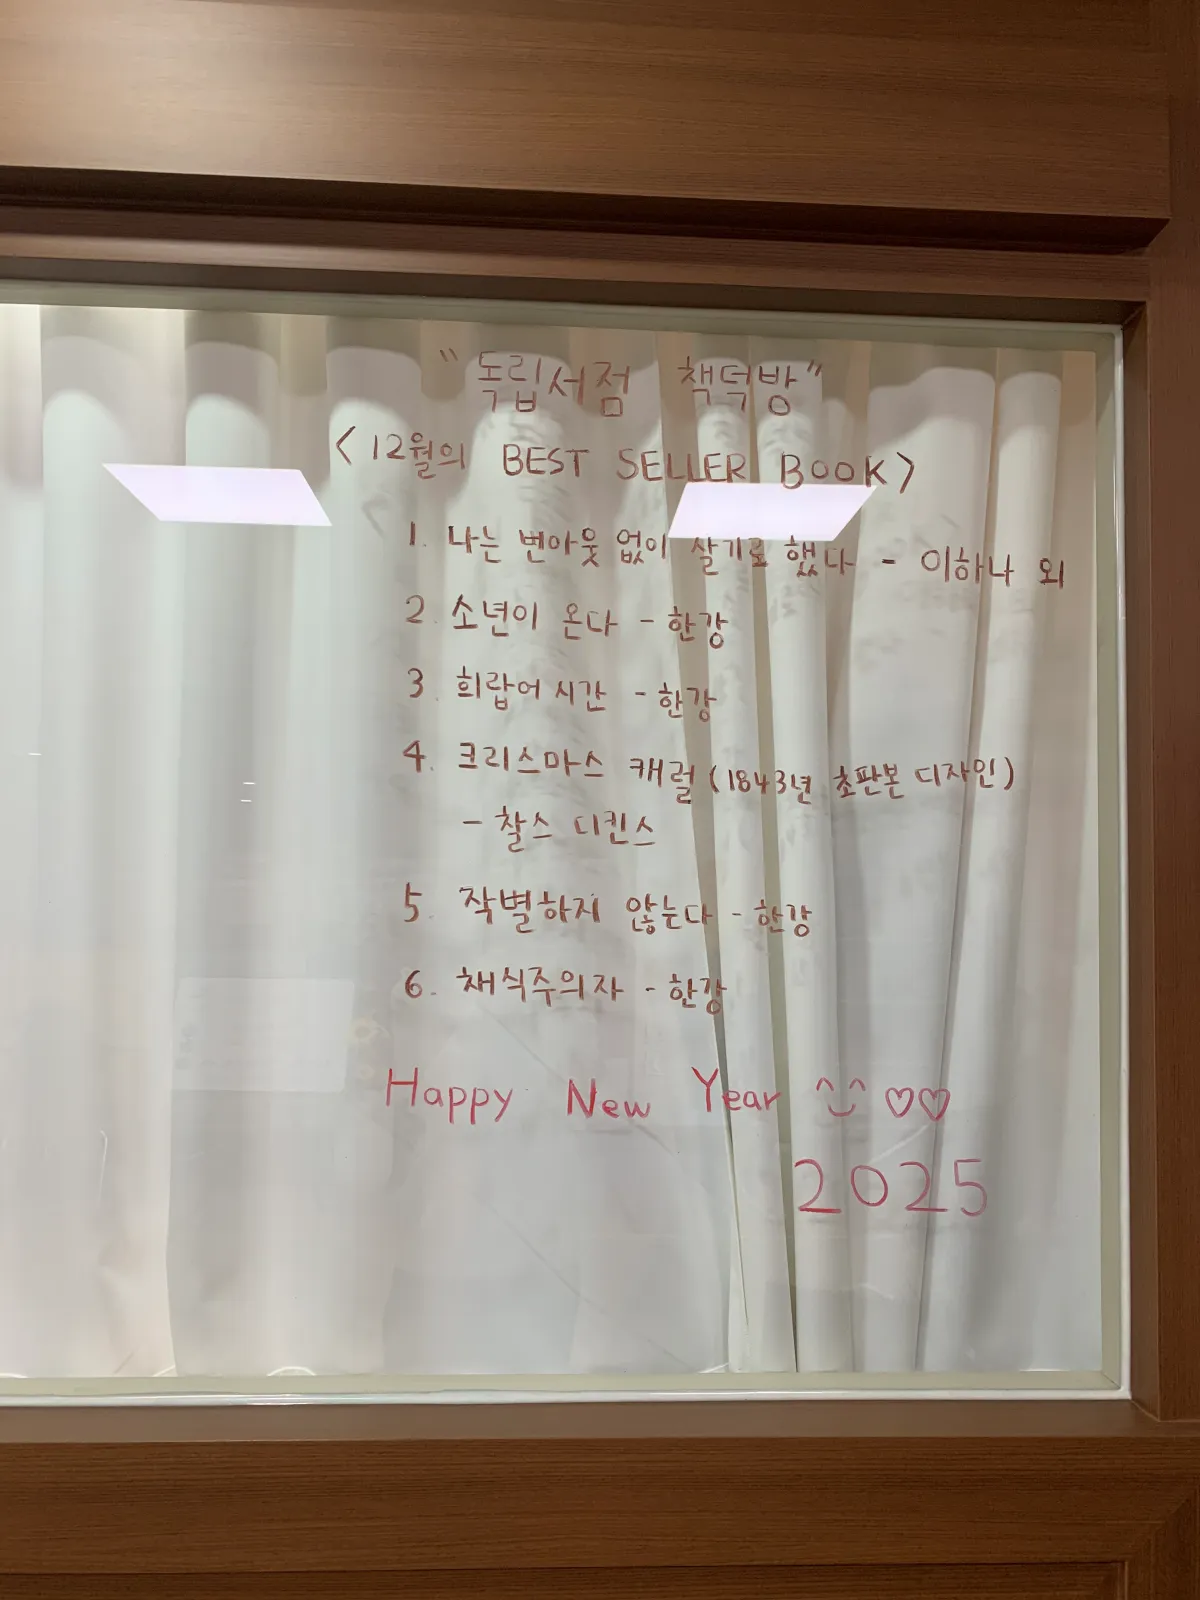 "독립서점 책덕방"
<12월의 BEST SELLER BOOK>
1. 나는 번아웃 없이 살기로 했다 - 이하나 외
2. 소년이 온다 - 한강
3. 희랍어 시간 - 한강
4. 크리스마스 캐럴 (1843년 초판본 디자인)
- 찰스 디킨스
5. 작별하지 않는다 - 한강
6. 채식주의자 - 한강
Happy New Year ^‿^ ♡♡
2025